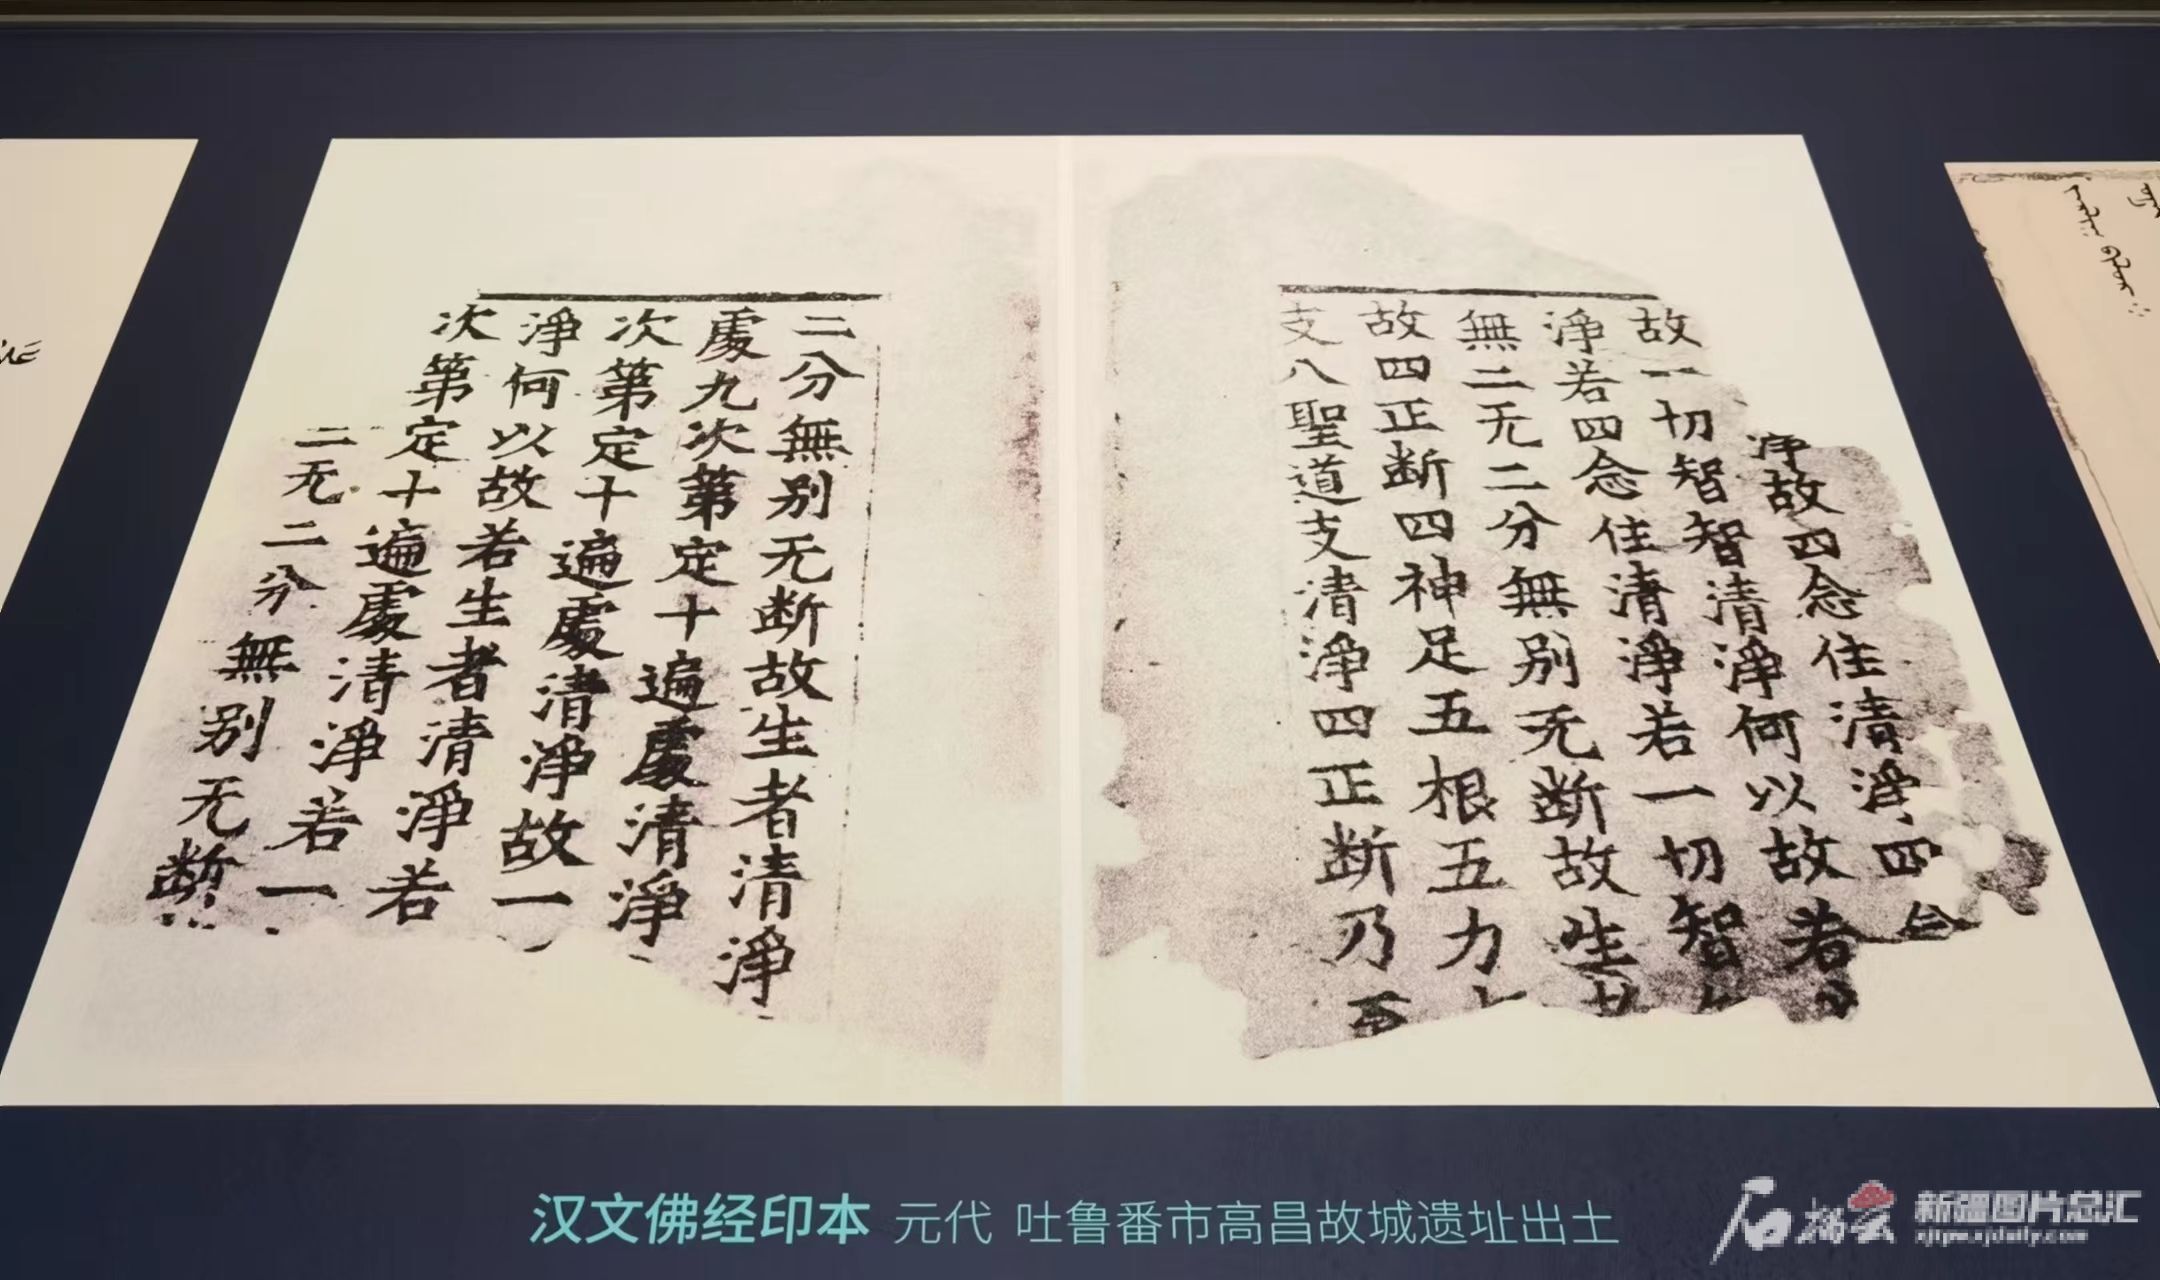 淨故四念住清淨四念
故一切智智清淨何以故若
淨若四念住清淨若一切智
無二无二分無別无断故生
故四正断四神足五根五力
支八聖道支清淨四正断乃至
二分無別无断故生者清淨
處九次第定十遍處清淨
次第定十遍處清淨故一
淨何以故若生者清淨若
次第定十遍處清淨若一
二无二分無别无断
汉文佛经印本 元代 吐鲁番市高昌故城遗址出土
石榴云
新疆图片总汇
xjtpw.xjdaily.com